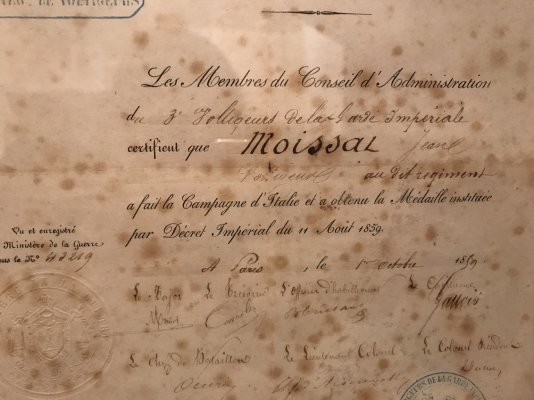 DE VOLTIGEURS
Les Membres du Conseil d'Administration
du 3e Voltigeurs de la Garde Impériale
certifient que MOISSAL Jean
Voltigeur au dit régiment
a fait la Campagne d'Italie et a obtenu la Médaille instituée
par Décret Impérial du 11 Août 1859.
Vu et enregistré
Ministère de la Guerre
sous le No 43219
A Paris, le 1er Octobre 1859
Le Major Le Trésorier L'Officier d'habillement Le Capitaine
Le Chef de Bataillon Le Lieutenant Colonel Le Colonel Président